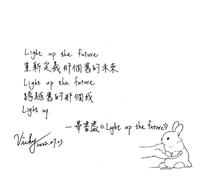 Light up the future
重新定義那個舊的未來
Light up the future
跨越舊的那個我
Light up
《Light up the future》
Vicky 2022.